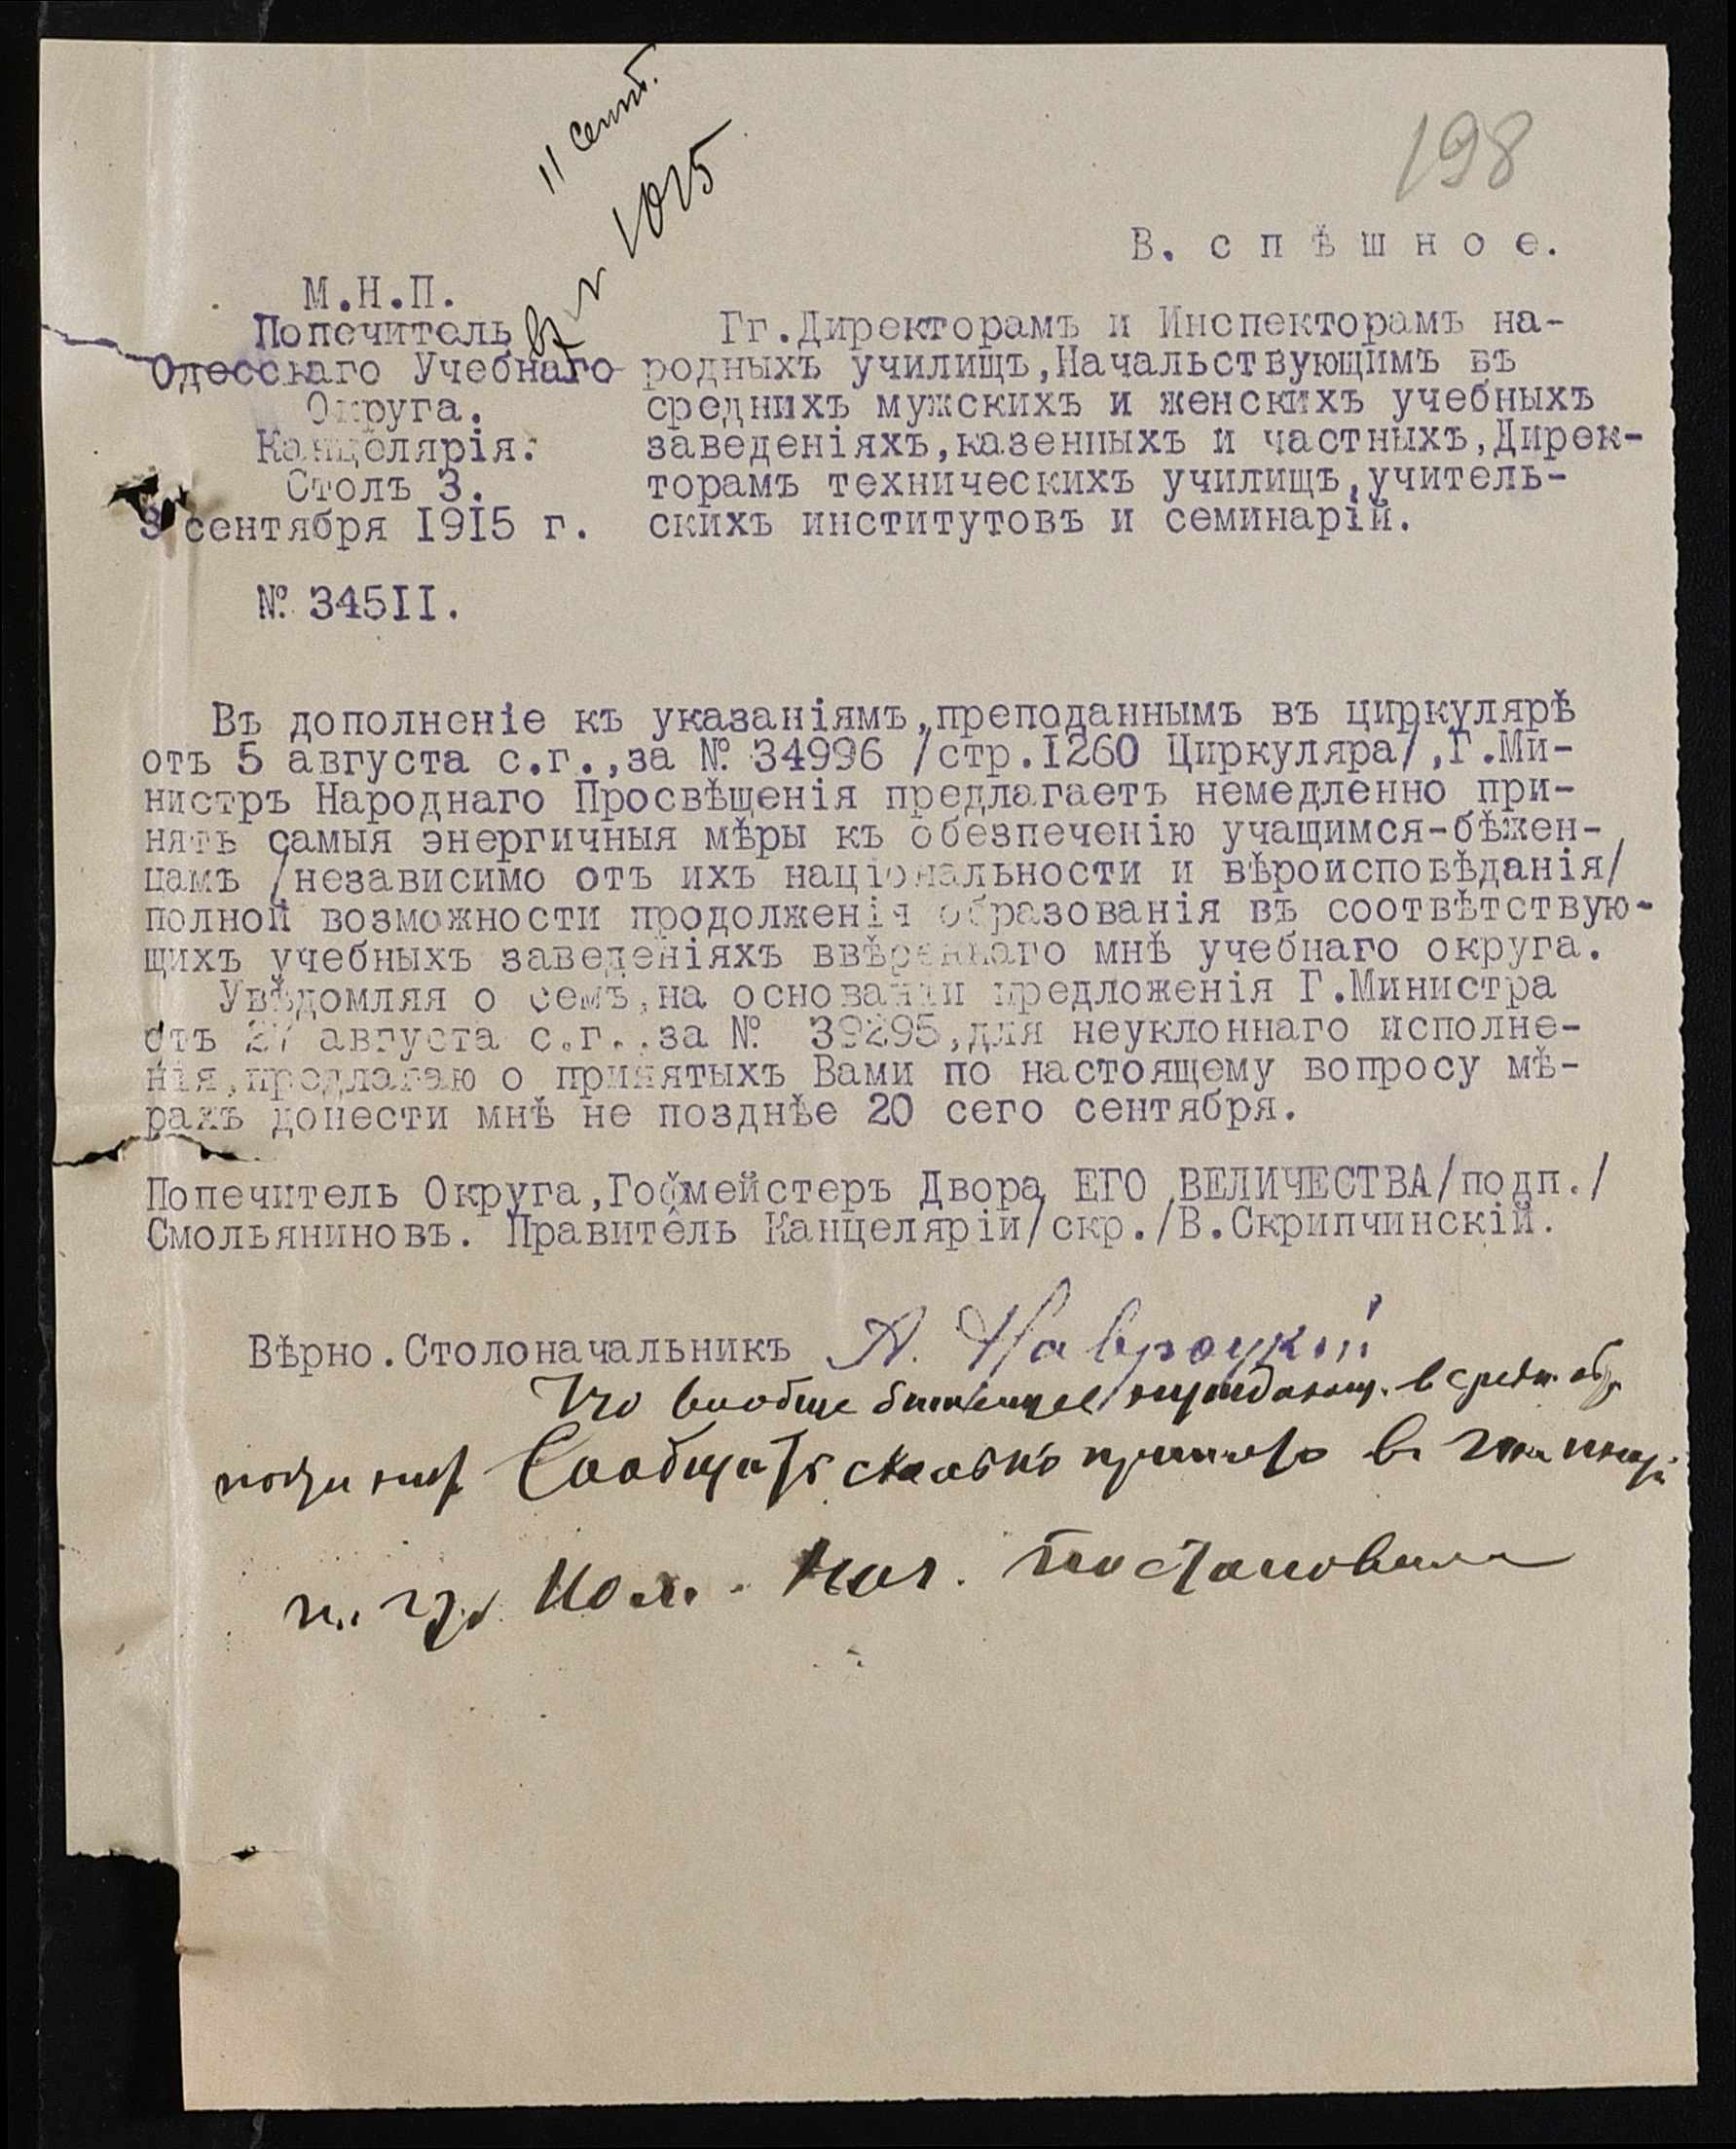 11 сент.
1015
198
В. с п ѣ ш н о е.
М.Н.П.
Попечитель
Одесскаго Учебнаго
Округа.
Канцелярія.
Столъ 3.
3 сентября I9I5 г.
№ 345II.
Гг.Директорамъ и Инспекторамъ на-
родныхъ училищъ,Начальствующимъ въ
среднихъ мужскихъ и женскихъ учебныхъ
заведеніяхъ,казенныхъ и частныхъ,Дирек-
торамъ техническихъ училищъ,учитель-
скихъ институтовъ и семинарій.
Въ дополненіе къ указаніямъ,преподаннымъ въ циркулярѣ
отъ 5 августа с.г.,за № 34996 /стр.I260 Циркуляра/,Г.Ми-
нистръ Народнаго Просвѣщенія предлагаетъ немедленно при-
нять самыя энергичныя мѣры къ обезпеченію учащимся-бѣжен-
цамъ /независимо отъ ихъ національности и вѣроисповѣданія/
полной возможности продолженія образованія въ соотвѣтствую-
щихъ учебныхъ заведеніяхъ ввѣреннаго мнѣ учебнаго округа.
Увѣдомляя о семъ,на основаніи предложенія Г.Министра
отъ 27 августа с.г.,за № 39295,для неуклоннаго исполне-
нія,предлагаю о принятыхъ Вами по настоящему вопросу мѣ-
рахъ донести мнѣ не позднѣе 20 сего сентября.
Попечитель Округа,Гофмейстеръ Двора ЕГО ВЕЛИЧЕСТВА/подп./
Смольяниновъ. Правитель Канцеляріи/скр./В.Скрипчинскій.
Вѣрно.Столоначальникъ А. Навроцкій
вообще
Сообщать сколько принято в
Постановили